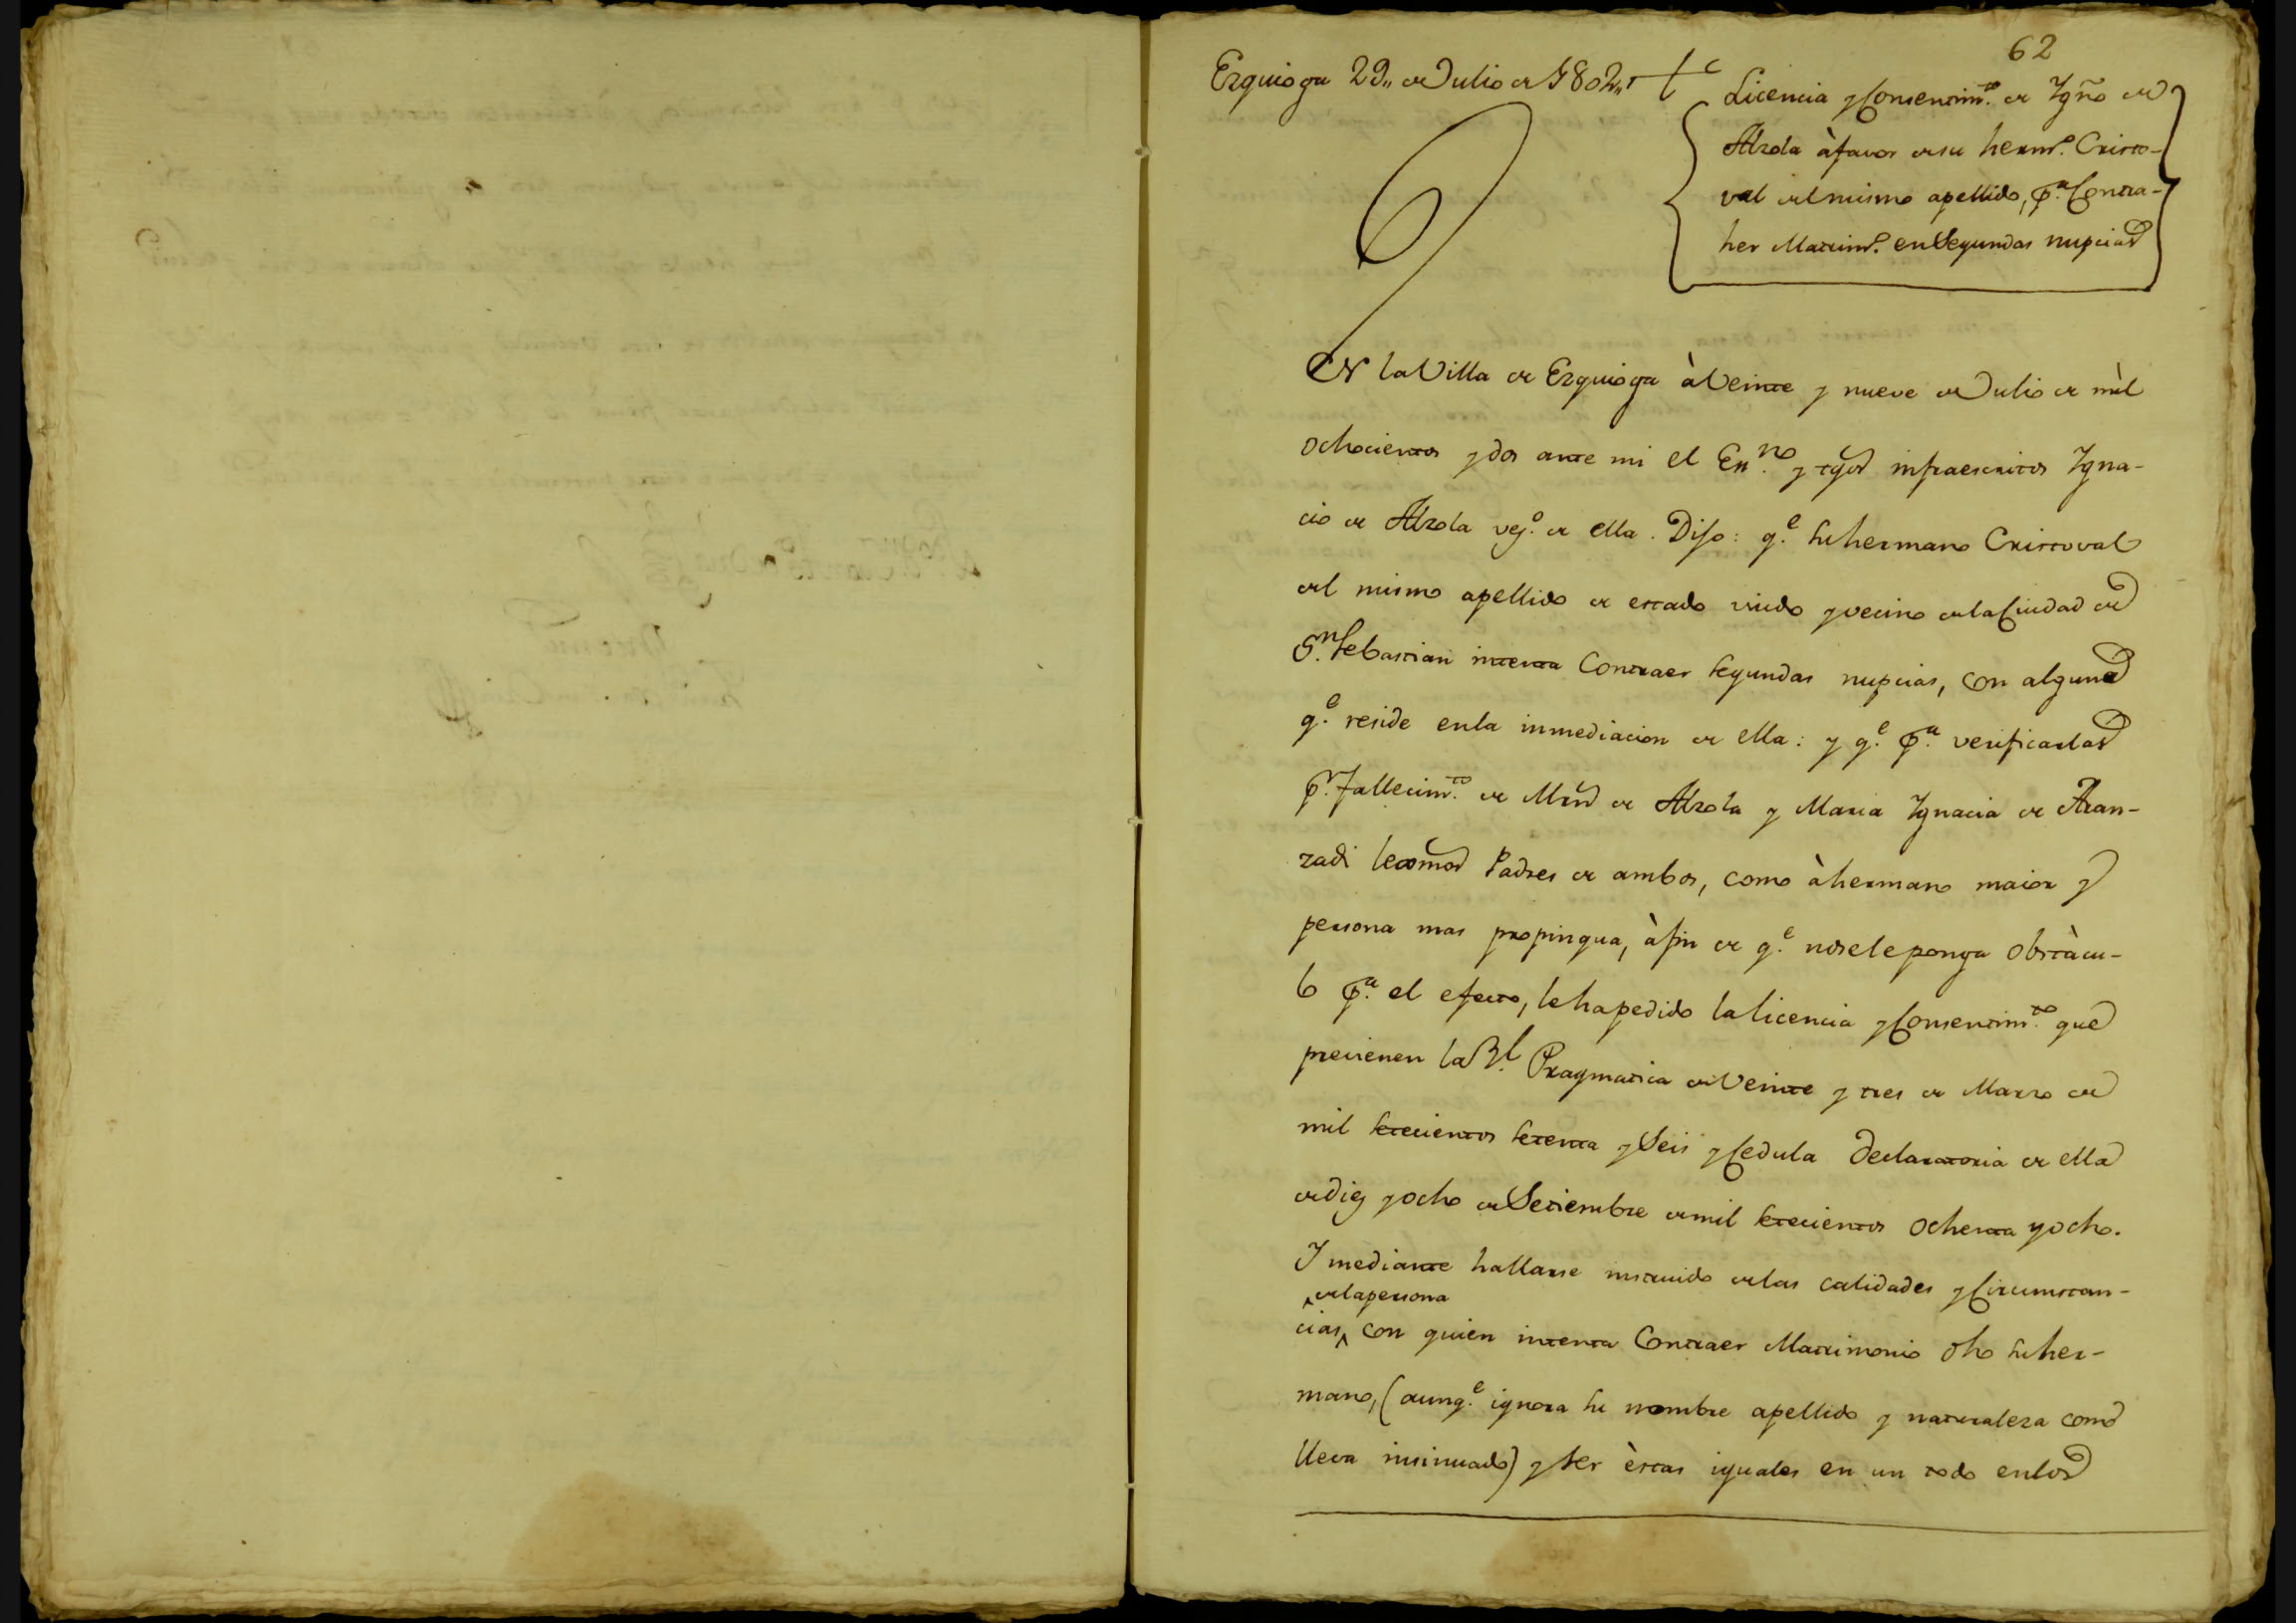 62
Ezquioga 29,, de Julio de 1802,,
Licencia y Consentim.to de Ygn.o de
Alzola à favor de su herm.o Cristo-
val del mismo apellido, p.a Contra-
her Matrim.o en Segundas nupcias
EN la Villa de Ezquioga à Veinte y nueve de Julio de mìl
ochocientos y dos ante mi el Ess.no y tgos infraescritos Ygna-
cio de Alzola vez.o de ella. Dijo: q.e su hermano Cristoval
del mismo apellido de estado viudo y vecino de la Ciudad de
S.n Sebastian intenta Contraer segundas nupcias, con alguna
q.e reside en la inmediacion de ella: y q.e p.a verificarlas
p.r fallecim.to de de Alzola y Maria Ygnacia de Aran-
zadi lexmos Padres de ambos, como à hermano maior y
persona mas propinqua, à fin de q.e no se le ponga obstàcu-
lo p.a el efecto, le ha pedido la licencia y Consentim.to que
previenen la R.l Pragmatica de Veinte y tres de Marzo de
mil setecientos setenta y Seis y Cedula declaratoria de ella
de diez y ocho de Setiembre de mil setecientos ochenta y ocho.
Y mediante hallarse instruido de las calidades y Circunstan-
^ de la persona
cias^ con quien intenta Contraer Matrimonio dho su her-
mano, (aunq.e ignora su nombre apellido y naturaleza como
lleva insinuado) y ser èstas iguales en un todo en los